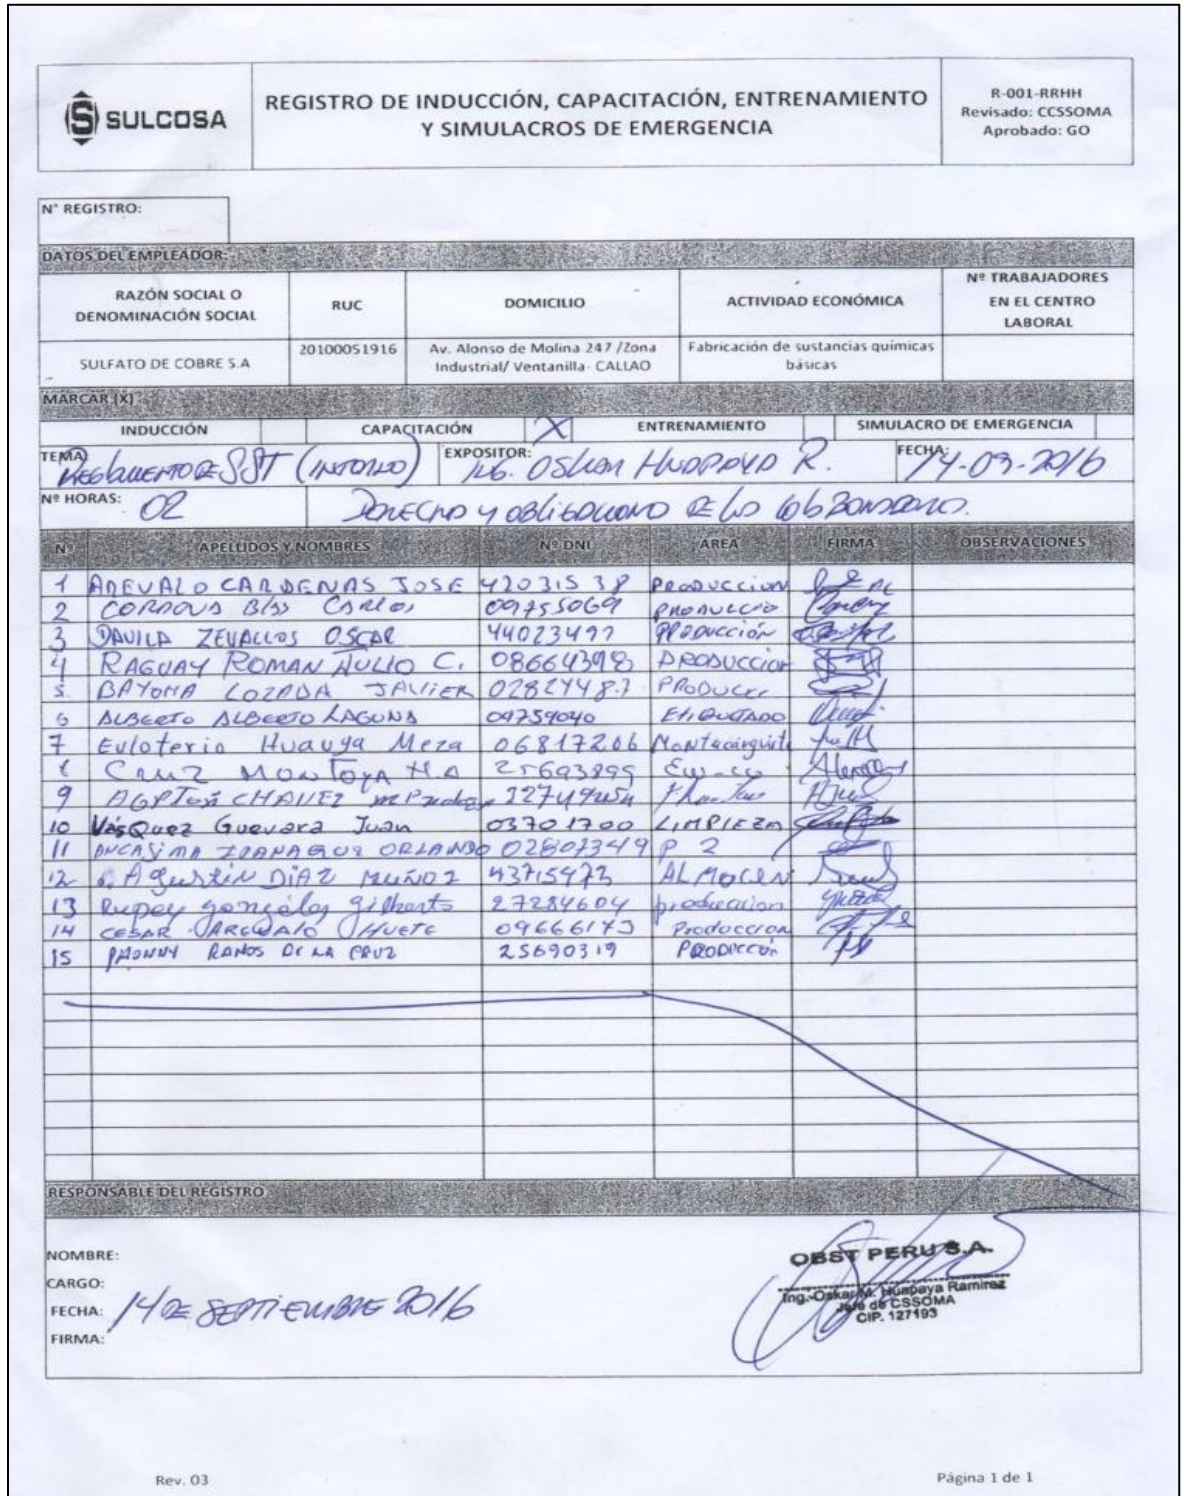 SULCOSA
REGISTRO DE INDUCCIÓN, CAPACITACIÓN, ENTRENAMIENTO
Y SIMULACROS DE EMERGENCIA
R-001-RRHH
Revisado: CCSSOMA
Aprobado: GO
N° REGISTRO:
DATOS DEL EMPLEADOR:
RAZÓN SOCIAL O DENOMINACIÓN SOCIAL RUC DOMICILIO ACTIVIDAD ECONÓMICA Nº TRABAJADORES EN EL CENTRO LABORAL
SULFATO DE COBRE S.A 20100051916 Av. Alonso de Molina 247 /Zona Industrial/ Ventanilla- CALLAO Fabricación de sustancias químicas básicas
MARCAR (X)
INDUCCIÓN CAPACITACIÓN X ENTRENAMIENTO SIMULACRO DE EMERGENCIA
TEMA: Reglamento de SST (interno) EXPOSITOR: Ing. Oskar Huapaya R. FECHA: 14-09-2016
Nº HORAS: 02 Derecho y de los
Nº APELLIDOS Y NOMBRES Nº DNI ÁREA FIRMA OBSERVACIONES
1 AREVALO CARDENAS JOSE 42031538 PRODUCCION
2 CORDOVA Blas Carlos 09755069 PRODUCCIO
3 DAVILA ZEVALLOS OSCAR PRODUCCIÓN
4 RAGUAY ROMAN JULIO C. 08664398 PRODUCCION
5. BAYONA LOZADA JAVIER 02824487
6 ALBERTO ALBERTO LAGUNA 09759040 ETIQUETADO
7 Euloterio Huauya Meza 06817206
8 CRUZ MONTOYA H.A 25693899
9 CHAVEZ
10 VásQuez Guevara Juan 03701700 LIMPIEZA
11 ORLANDO 02807349 P 2
12 Agustin DiAZ MUÑOZ 43715473 ALMACEN
13 Rupay gonzáles gilberto 27284604 produccion
14 CESAR AREVALO HUETE 09666173 Produccion
15 JHONNY RAMOS DE LA CRUZ 25690319
RESPONSABLE DEL REGISTRO
NOMBRE:
CARGO:
FECHA: 14 DE SEPTIEMBRE 2016
FIRMA:
OBST PERU S.A.
Ing. Oskar M. Huapaya Ramirez
Jefe de CSSOMA
CIP. 127193
Rev. 03
Página 1 de 1